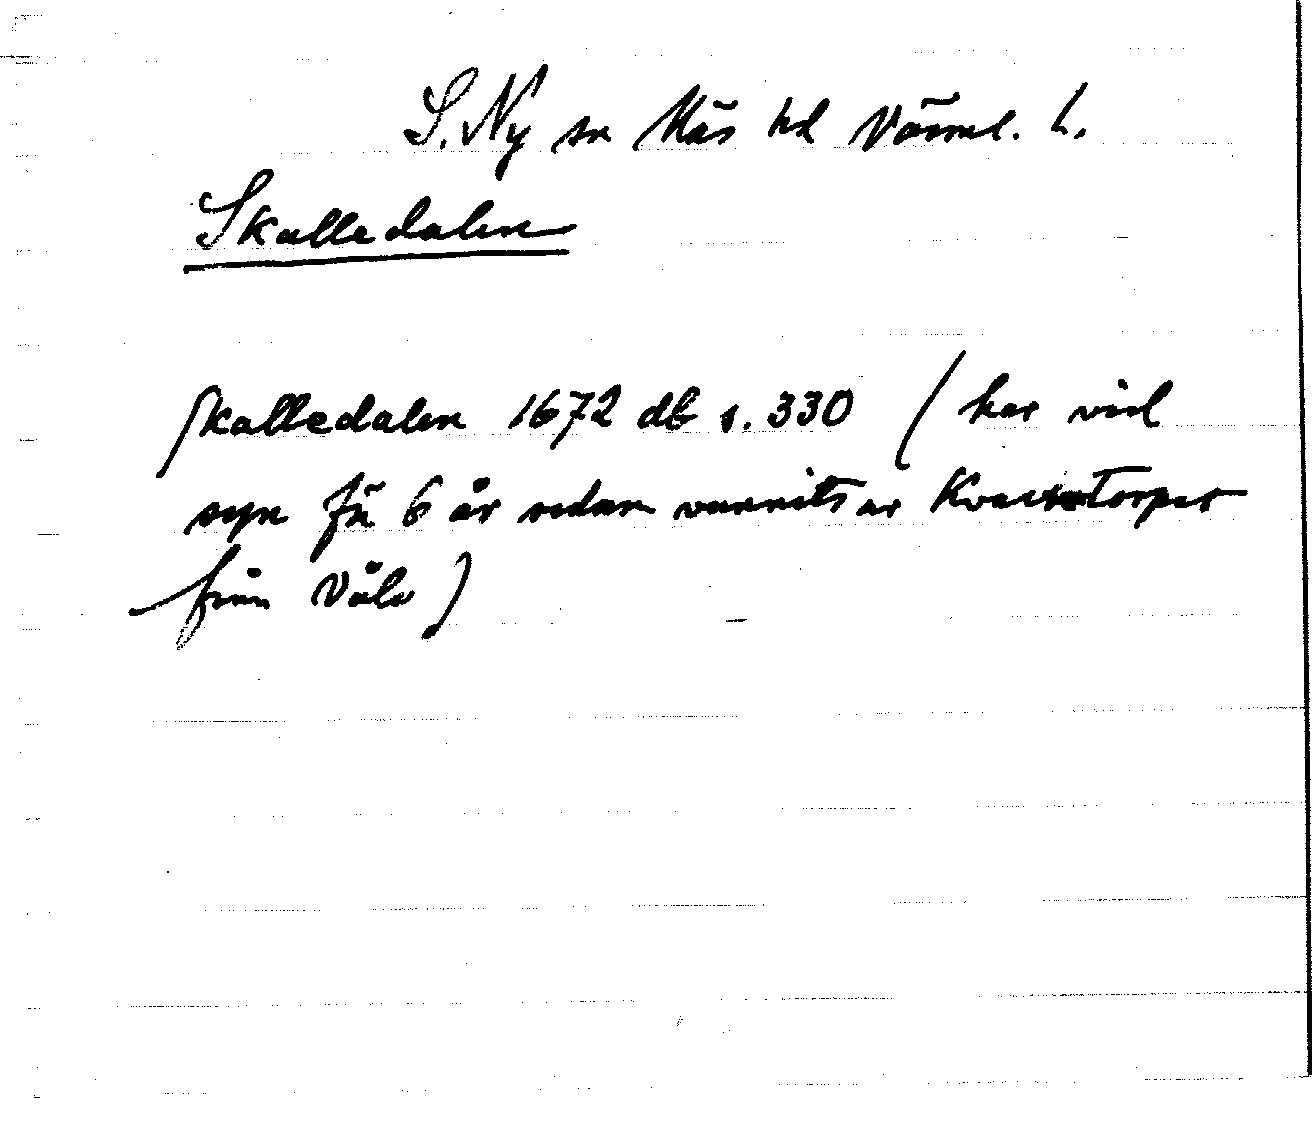 S. Ny sn Näs hd Värml. L.
Skalledalen
Skalledalen 1672 db s. 330 (har vid
syn för 6 år sedan vunnits av
från Vålv)